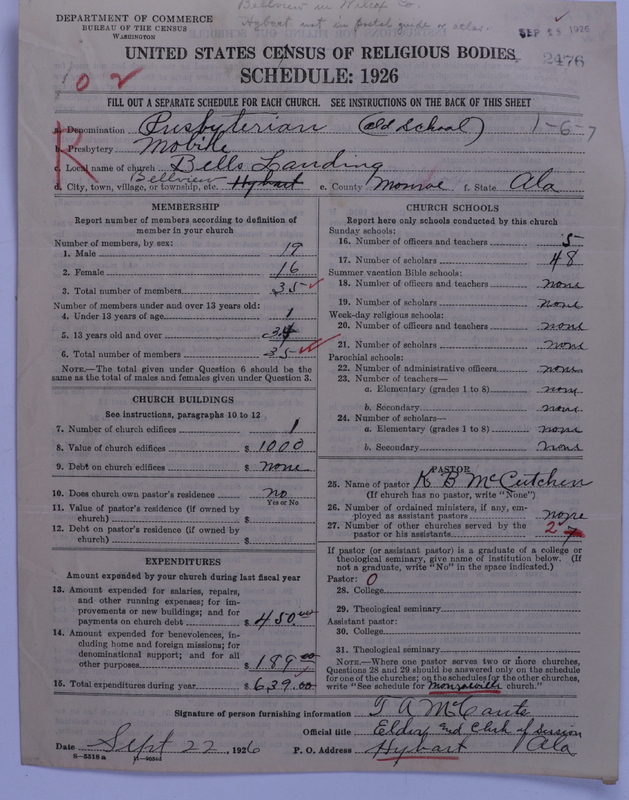 Bellview in Wilcox Co.
Hybart not in postal guide or atlas.
DEPARTMENT OF COMMERCE
BUREAU OF THE CENSUS
WASHINGTON
SEP 1926
2476
UNITED STATES CENSUS OF RELIGIOUS BODIES
SCHEDULE: 1926
FILL OUT A SEPARATE SCHEDULE FOR EACH CHURCH. SEE INSTRUCTIONS ON THE BACK OF THIS SHEET
a. Denomination Presbyterian (Old School) 1-6-7
b. Presbytery Mobile
c. Local name of church Bells Landing
d. City, town, village, or township, etc. Bellview Hybart e. County Monroe f. State Ala
MEMBERSHIP
Report number of members according to definition of
member in your church
Number of members, by sex:
1. Male 19
2. Female 16
3. Total number of members 35
Number of members under and over 13 years old:
4. Under 13 years of age 1
5. 13 years old and over 34
6. Total number of members 35
NOTE.—The total given under Question 6 should be the
same as the total of males and females given under Question 3.
CHURCH BUILDINGS
See instructions, paragraphs 10 to 12
7. Number of church edifices 1
8. Value of church edifices $ 1000
9. Debt on church edifices $ none
10. Does church own pastor's residence no
Yes or No
11. Value of pastor's residence (if owned by
church) $
12. Debt on pastor's residence (if owned by
church) $
EXPENDITURES
Amount expended by your church during last fiscal year
13. Amount expended for salaries, repairs,
and other running expenses; for im-
provements or new buildings; and for
payments on church debt $ 450.00
14. Amount expended for benevolences, in-
cluding home and foreign missions; for
denominational support; and for all
other purposes $ 189.00
15. Total expenditures during year $ 639.00
CHURCH SCHOOLS
Report here only schools conducted by this church
Sunday schools:
16. Number of officers and teachers 5
17. Number of scholars 48
Summer vacation Bible schools:
18. Number of officers and teachers none
19. Number of scholars none
Week-day religious schools:
20. Number of officers and teachers none
21. Number of scholars none
Parochial schools:
22. Number of administrative officers none
23. Number of teachers—
a. Elementary (grades 1 to 8) none
b. Secondary none
24. Number of scholars—
a. Elementary (grades 1 to 8) none
b. Secondary none
PASTOR
25. Name of pastor K B McCutchen
(If church has no pastor, write "None")
26. Number of ordained ministers, if any, em-
ployed as assistant pastors none
27. Number of other churches served by the
pastor or his assistants 2
If pastor (or assistant pastor) is a graduate of a college or
theological seminary, give name of institution below. (If
not a graduate, write "No" in the space indicated.)
Pastor: 0
28. College
29. Theological seminary
Assistant pastor:
30. College
31. Theological seminary
NOTE.—Where one pastor serves two or more churches,
Questions 28 and 29 should be answered only on the schedule
for one of the churches; on the schedules for the other churches,
write "See schedule for Monroeville church."
Signature of person furnishing information T A McCants
Official title Elder and Clerk of Session
Date Sept 22, 1926 P. O. Address Hybart Ala
8-5318 a